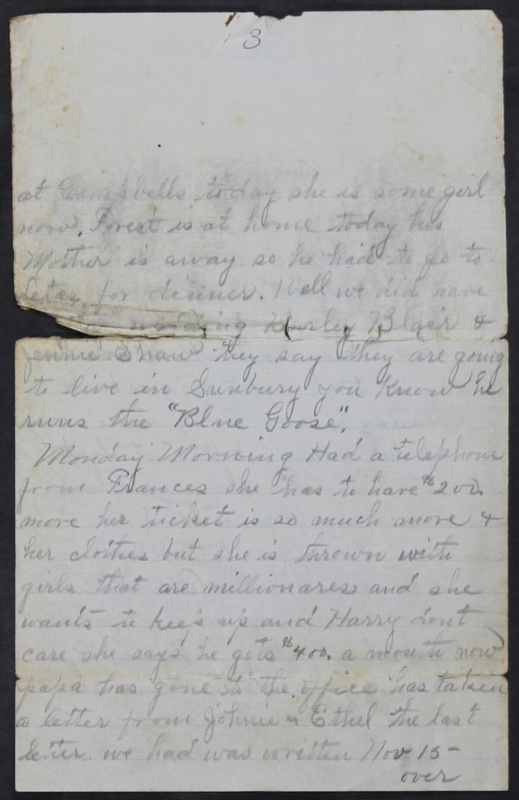 3
at Campbells today she is some girl
now. Forest is at home today his
Mother is away so he had to go to
for dinner. Well we did have
wedding Hurley Blair &
Jennie Shaw They say they are going
to live in Sunbury you know he
runs the "Blue Goose".
Monday Morning Had a telephone
from Frances she has to have $200
more her ticket is so much more &
her clothes but she is thrown with
girls that are millionaress and she
wants to keep up and Harry dont
care she says he gets $400. a month now
papa has gone to the office has taken
a letter from Johnie & Ethel the last
letter we had was written Nov 15-
over